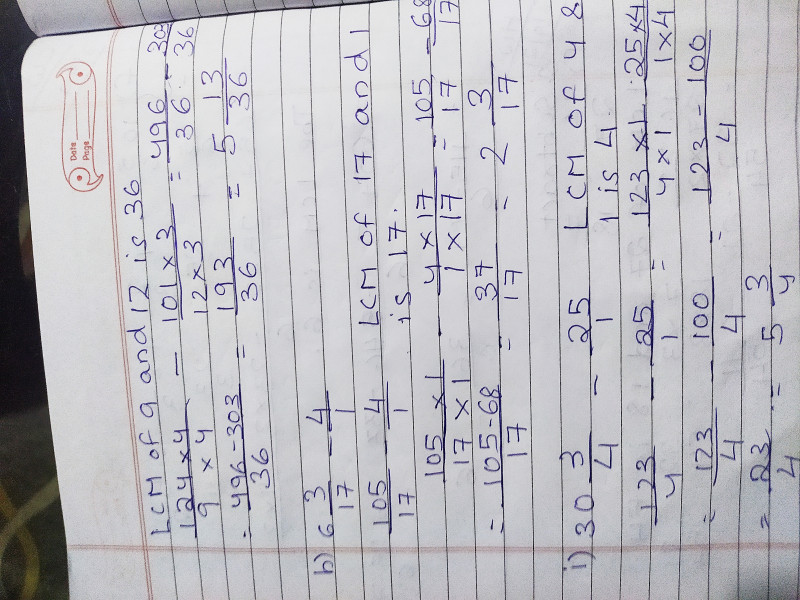 Date
Page
LCM of 9 and 12 is 36
124 × 4 / 9 × 4 - 101 × 3 / 12 × 3 = 496 / 36 - 303 / 36
= 496 - 303 / 36 = 193 / 36 = 5 13/36
h) 6 3/17 - 4/1
105/17 - 4/1 LCM of 17 and 1
is 17.
105 × 1 / 17 × 1 - 4 × 17 / 1 × 17 = 105 / 17 - 68 / 17
= 105 - 68 / 17 = 37 / 17 = 2 3/17
i) 30 3/4 - 25/1 LCM of 4 &
1 is 4.
123/4 - 25/1 = 123 × 1 / 4 × 1 - 25 × 4 / 1 × 4
= 123/4 - 100/4 = 123 - 100 / 4
= 23/4 = 5 3/4